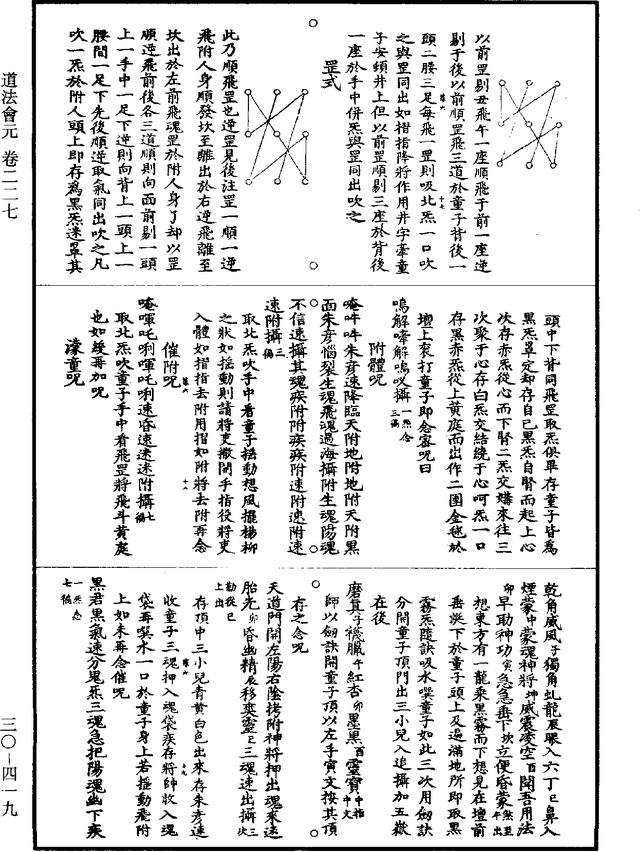 道法會元 卷二二七
三〇—四一九
以前罡剔丑飛午一座順飛子前一座逆
剔于後以前順罡飛三道於童子背後一
頭二腰三足每飛一罡則吸北炁一口吹
之與罡同出如指揩降將作用井字華童
子安頓井上但以前罡順剔三座於背後
一座於手中併炁與罡同出吹之
罡式
此乃順飛罡也逆罡見後注罡一順一逆
飛附人身順發坎至離出於右逆飛離至
坎出於左前飛魂罡於附人身了却以罡
順逆飛前後各三道順則向面前剔一頭
上一手中一足下逆則向背上一頭上一
腰間一足下先後順逆取氣同出吹之凡
吹一炁於附人頭上即存為黑炁迷罩其
頭中下背同飛罡取炁俱畢存童子皆為
黑炁罩定却存自己黑炁自腎而起上心
次存赤炁從心而下腎二炁交媾來往三
次聚于心存白炁交結繞于心呵炁一口
存黑赤炁從上黃庭而出作二團金毬於
壇上袞打童子即念密呪曰
嗚解啼解嗚㕛攝一炁念三徧
附體呪
唵吽吽朱彦速降臨天附地附地附天附黑
面朱彦惱裂生魂飛魂過海攝附生魂陽魂
不信速攝其魂疾附附疾疾附速附速附速
速附攝三徧
取北炁吹手中看童子摇動想風擺楊柳
之狀如摇動則請將吏撒開手指役將吏
入體如揩指去附用揩如附將去附再念
催附呪
唵㖇吒唎㖇吒唎速昏速迷迷附攝七徧
取北炁吹童子手中看飛罡將飛斗黃庭
也如緩再加呪
濛童呪
乾角威風子獨角虬龍辰眼入六丁巳鼻入
煙蒙中蒙魂神將坤威震凌空酉聞吾用法
卯早助神功寅急急垂下坎立便昏蒙午煞至出
想東方有一龍乘黑霧而下想見在壇前
垂涎下於童子頭上及遍滿地所即取黑
霧炁隨訣吸水噀童子如此三次用劒訣
分開童子頂門出三小兒入追攝加五嶽
在後
磨真子襪臘午紅杏卯墨黑酉靈寶中指中文
師以劒訣開童子頂以左手寅文按其頂
存之念呪
天道門開左陽右陰拷附神將押出魂來速
胎光卯昏幽精辰移爽靈巳三魂速出攝三次
勒從巳上出
存頂中三小兒青黃白色出來存朱彦速
收童子三魂押入魂袋疾存將帥收入魂
袋再噀水一口於童子身上若摇動飛附
上如未再念催呪
黑君黑氣速分鬼炁三魂急把陽魂幽下疾
一炁念七徧